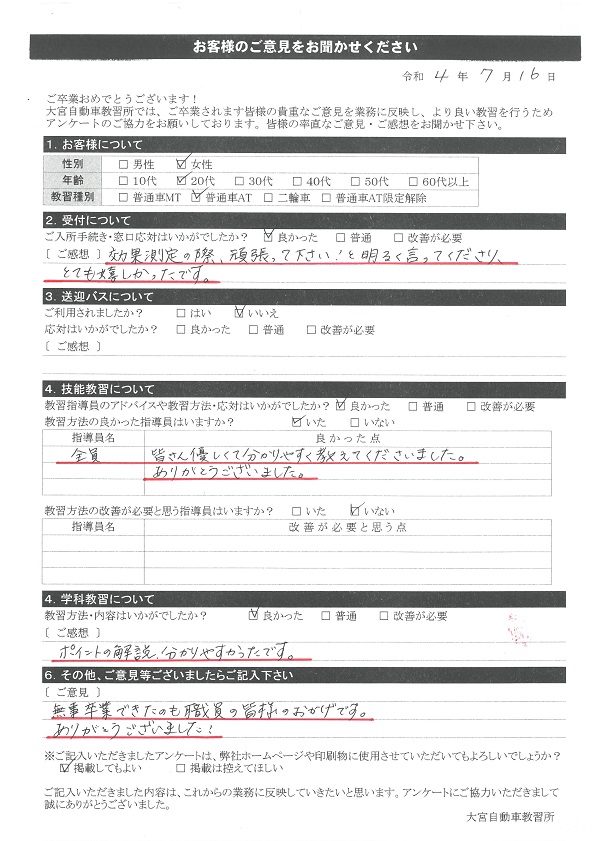 お客様のご意見をお聞かせください
令和 4 年 7 月 16 日
ご卒業おめでとうございます！
大宮自動車教習所では、ご卒業されます皆様の貴重なご意見を業務に反映し、より良い教習を行うため
アンケートのご協力をお願いしております。皆様の率直なご意見・ご感想をお聞かせ下さい。
1. お客様について
性別 □ 男性 ☑ 女性
年齢 □ 10代 ☑ 20代 □ 30代 □ 40代 □ 50代 □ 60代以上
教習種別 □ 普通車MT ☑ 普通車AT □ 二輪車 □ 普通車AT限定解除
2. 受付について
ご入所手続き・窓口応対はいかがでしたか？ ☑ 良かった □ 普通 □ 改善が必要
〔 ご感想 〕 効果測定の際、頑張って下さい！と明るく言ってくださり、
とても嬉しかったです。
3. 送迎バスについて
ご利用されましたか？ □ はい ☑ いいえ
応対はいかがでしたか？ □ 良かった □ 普通 □ 改善が必要
〔 ご感想 〕
4. 技能教習について
教習指導員のアドバイスや教習方法・応対はいかがでしたか？ ☑ 良かった □ 普通 □ 改善が必要
教習方法の良かった指導員はいますか？ ☑ いた □ いない
指導員名 良かった点
全員 皆さん優しくて分かりやすく教えてくださいました。
ありがとうございました。
教習方法の改善が必要と思う指導員はいますか？ □ いた ☑ いない
指導員名 改善が必要と思う点
4. 学科教習について
教習方法・内容はいかがでしたか？ ☑ 良かった □ 普通 □ 改善が必要
〔 ご感想 〕
ポイントの解説、分かりやすかったです。
6. その他、ご意見等ございましたらご記入下さい
〔 ご意見 〕
無事卒業できたのも職員の皆様のおかげです。
ありがとうございました！
※ご記入いただきましたアンケートは、弊社ホームページや印刷物に使用させていただいてもよろしいでしょうか？
☑ 掲載してもよい □ 掲載は控えてほしい
ご記入いただきました内容は、これからの業務に反映していきたいと思います。アンケートにご協力いただきまして
誠にありがとうございました。
大宮自動車教習所